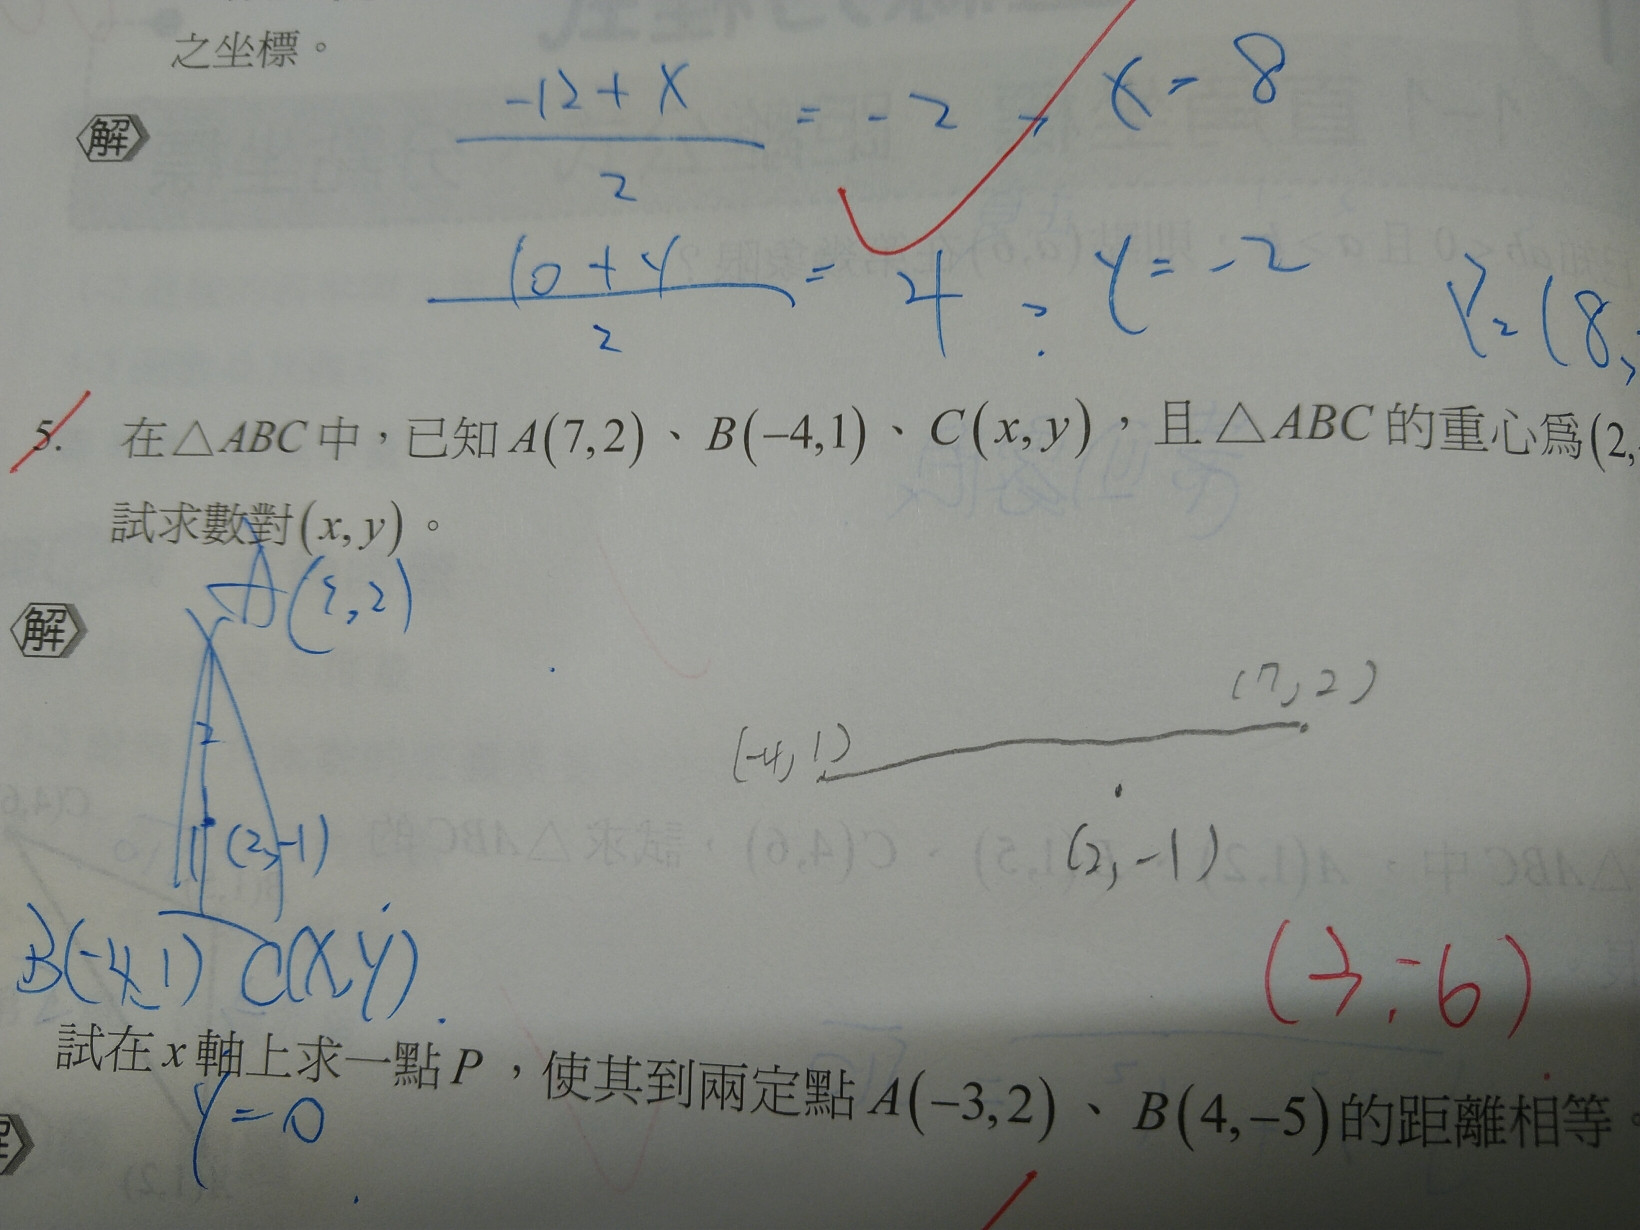 之坐標。
解
(-12+x)/2 = -2 , x = 8
(10+y)/2 = 4 , y = -2
P = (8,
5. 在△ABC中，已知A(7,2)、B(-4,1)、C(x,y)，且△ABC的重心為(2,
試求數對(x,y)。
解
A(7,2)
(7,2)
(-4,1)
2
1 (2,-1)
(2,-1)
B(-4,1) C(x,y)
(3,-6)
試在x軸上求一點P，使其到兩定點A(-3,2)、B(4,-5)的距離相等。
y=0